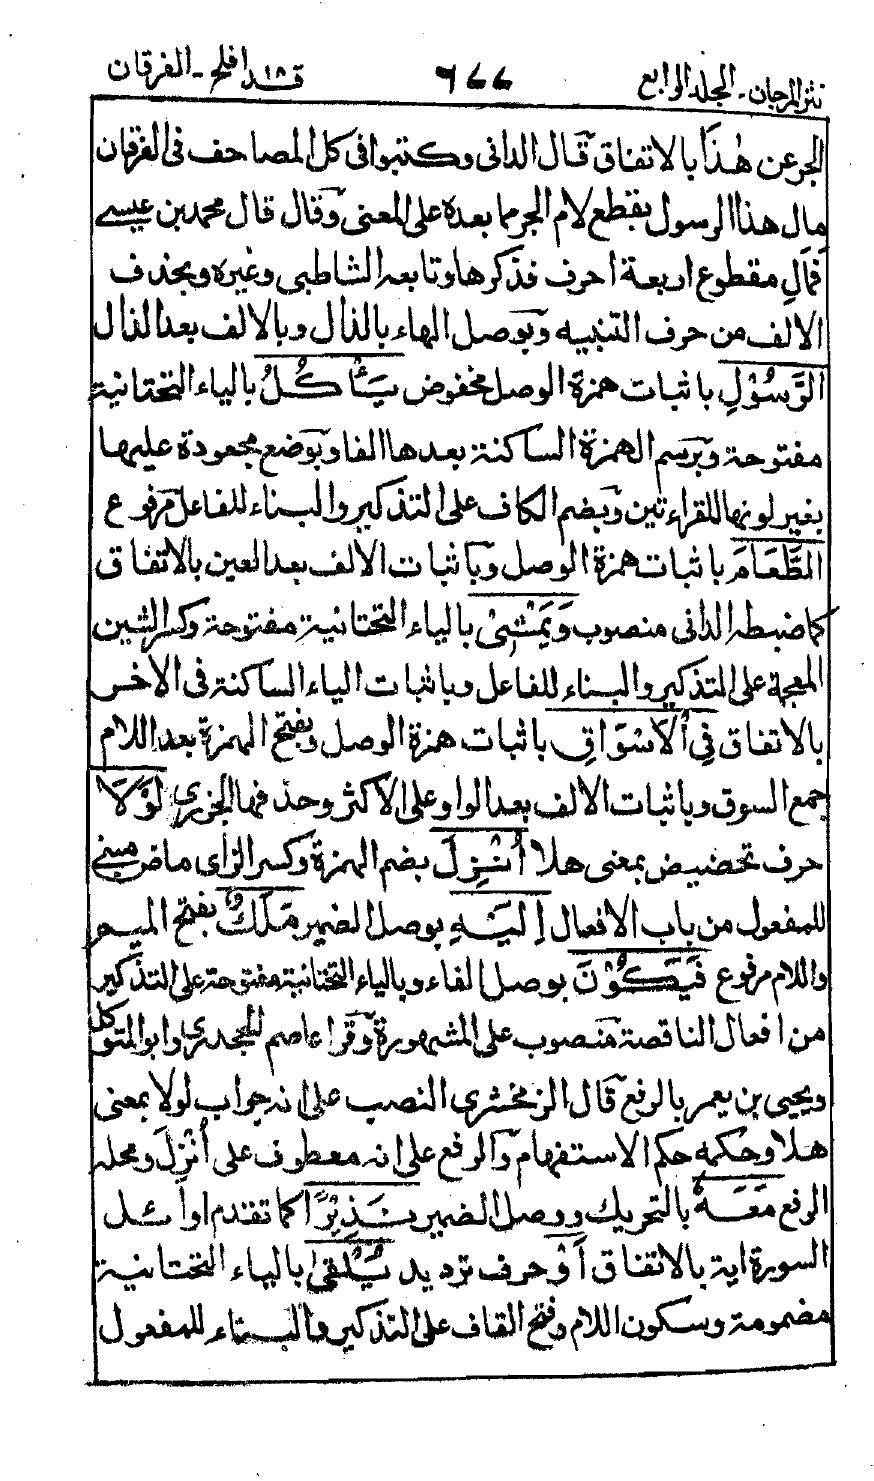 نثر المرجان - المجلد الرابع ٦٧٧ قد ١٨ افلح - الفرقان
الجر عن هٰذَا بالاتفاق قال الدانى وكتبوا فى كل المصاحف فى الفرقان
مال هذا الرسول بقطع لام الجر مما بعده على المعنى وقال قال محمد بن عيسے
فَمَالِ مقطوع اربعة احرف فذكرها وتابعه الشاطبى وغيره وبحذف
الالف من حرف التنبيه وبوصل الهاء بالذال وبالالف بعد الذال
الرَّسُوْلِ باثبات همزة الوصل مخفوض يَأْكُلُ بالياء التحتانية
مفتوحة وبرسم الهمزة الساكنة بعدها الفا وبوضع مجعودة عليها
بغير لونها للقراءتين وبضم الكاف على التذكير والبناء للفاعل مرفوع
الطَّعَامَ باثبات همزة الوصل وباثبات الالف بعد العين بالاتفاق
كما ضبطه الدانى منصوب وَيَمْشِىْ بالياء التحتانية مفتوحة وكسر الشين
المعجمة على التذكير والبناء للفاعل وباثبات الياء الساكنة فى الاخر
بالاتفاق فِى الْاَسْوَاقِ باثبات همزة الوصل وبفتح الهمزة بعد اللام
جمع السوق وباثبات الالف بعد الواو على الاكثر وحذفها الجزرى لَوْلَا
حرف تحضيض بمعنى هلا اُنْزِلَ بضم الهمزة وكسر الزاى ماض مبنے
للمفعول من باب الافعال اِلَيْهِ بوصل الضمير مَلَكٌ بفتح الميم
واللام مرفوع فَيَكُوْنَ بوصل الفاء وبالياء التحتانية مفتوحة على التذكير
من افعال الناقصة منصوب على المشهورة وقرا عاصم الجحدرى وابو المتوكل
ويحيى بن يعمر بالرفع قال الزمخشرى النصب على انه جواب لولا بمعنى
هلا وحكمه حكم الاستفهام والرفع على انه معطوف على اُنْزِلَ ومحله
الرفع مَعَهٗ بالتحريك ووصل الضمير نَذِيْرًا كما تقدم اوائل
السورة اية بالاتفاق اَوْ حرف ترديد يُلْقٰى بالياء التحتانية
مضمومة وسكون اللام وفتح القاف على التذكير والبناء للمفعول